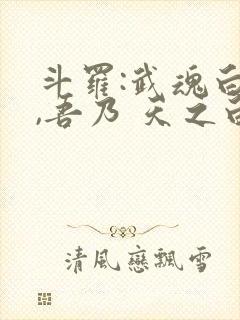 斗羅:武魂白
,吾乃 天之白
清風戀飄雪